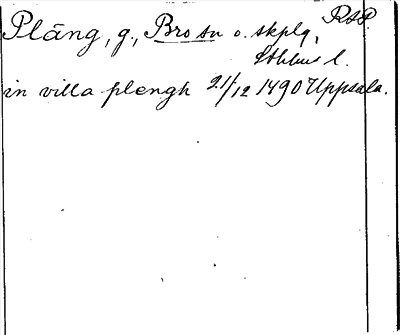 RAP.
Pläng, g., Bro sn o. skplg,
Sthlms l.
in villa plengh 21/12 1490 Uppsala.